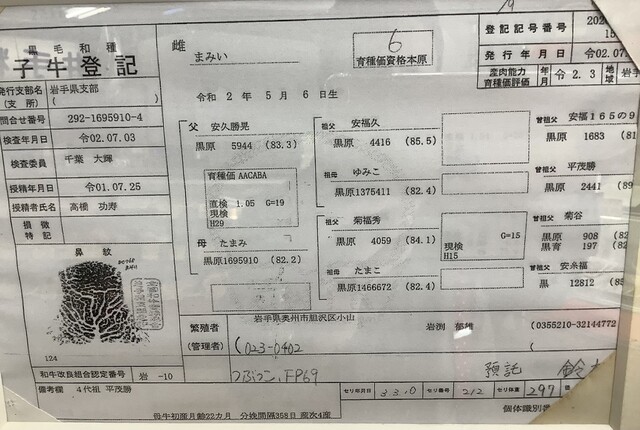 黒毛和種
子牛登記
発行支部名
(支 所)
岩手県支部
( )
問合せ番号
292-1695910-4
検査年月日
令02.07.03
検査委員
千葉 大輝
授精年月日
令01.07.25
授精者氏名
高橋 功寿
損徴
特記
鼻 紋
124
和牛改良組合認定番号
岩 -10
備考欄 4代祖 平茂勝
母牛初産月齢22カ月 分娩間隔358日 産次4産
雌
まみい
令和 2年 5月 6日生
6
育種価資格本原
登記記号番号
202
15
発行年月日
令02.07
産肉能力
育種価評価
年
月
令 2. 3
地
域
岩手
父 安久勝晃
黒原 5944 (83.3)
育種価 AACABA
直検 1.05 G=19
現検
H29
母 たまみ
黒原1695910 (82.2)
祖父 安福久
黒原 4416 (85.5)
祖母 ゆみこ
黒原1375411 (82.4)
祖父 菊福秀
黒原 4059 (84.1)
祖母 たまこ
黒原1466672 (82.4)
G=15
現検
H15
曾祖父 安福165の9
黒原 1683 (81
曾祖父 平茂勝
黒原 2441 (89
曾祖父 菊谷
黒原 908 (82
黒育 197 (82
曾祖父 安糸福
黒原 12812 (85
繁殖者
(管理者)
岩手県奥州市胆沢区小山
岩渕 郁雄
(0355210-32144772
(023-0402
つぶっこ、FP69
預託
セリ年月日
3.3.10
セリ番号
212
セリ体重
297
個体識別